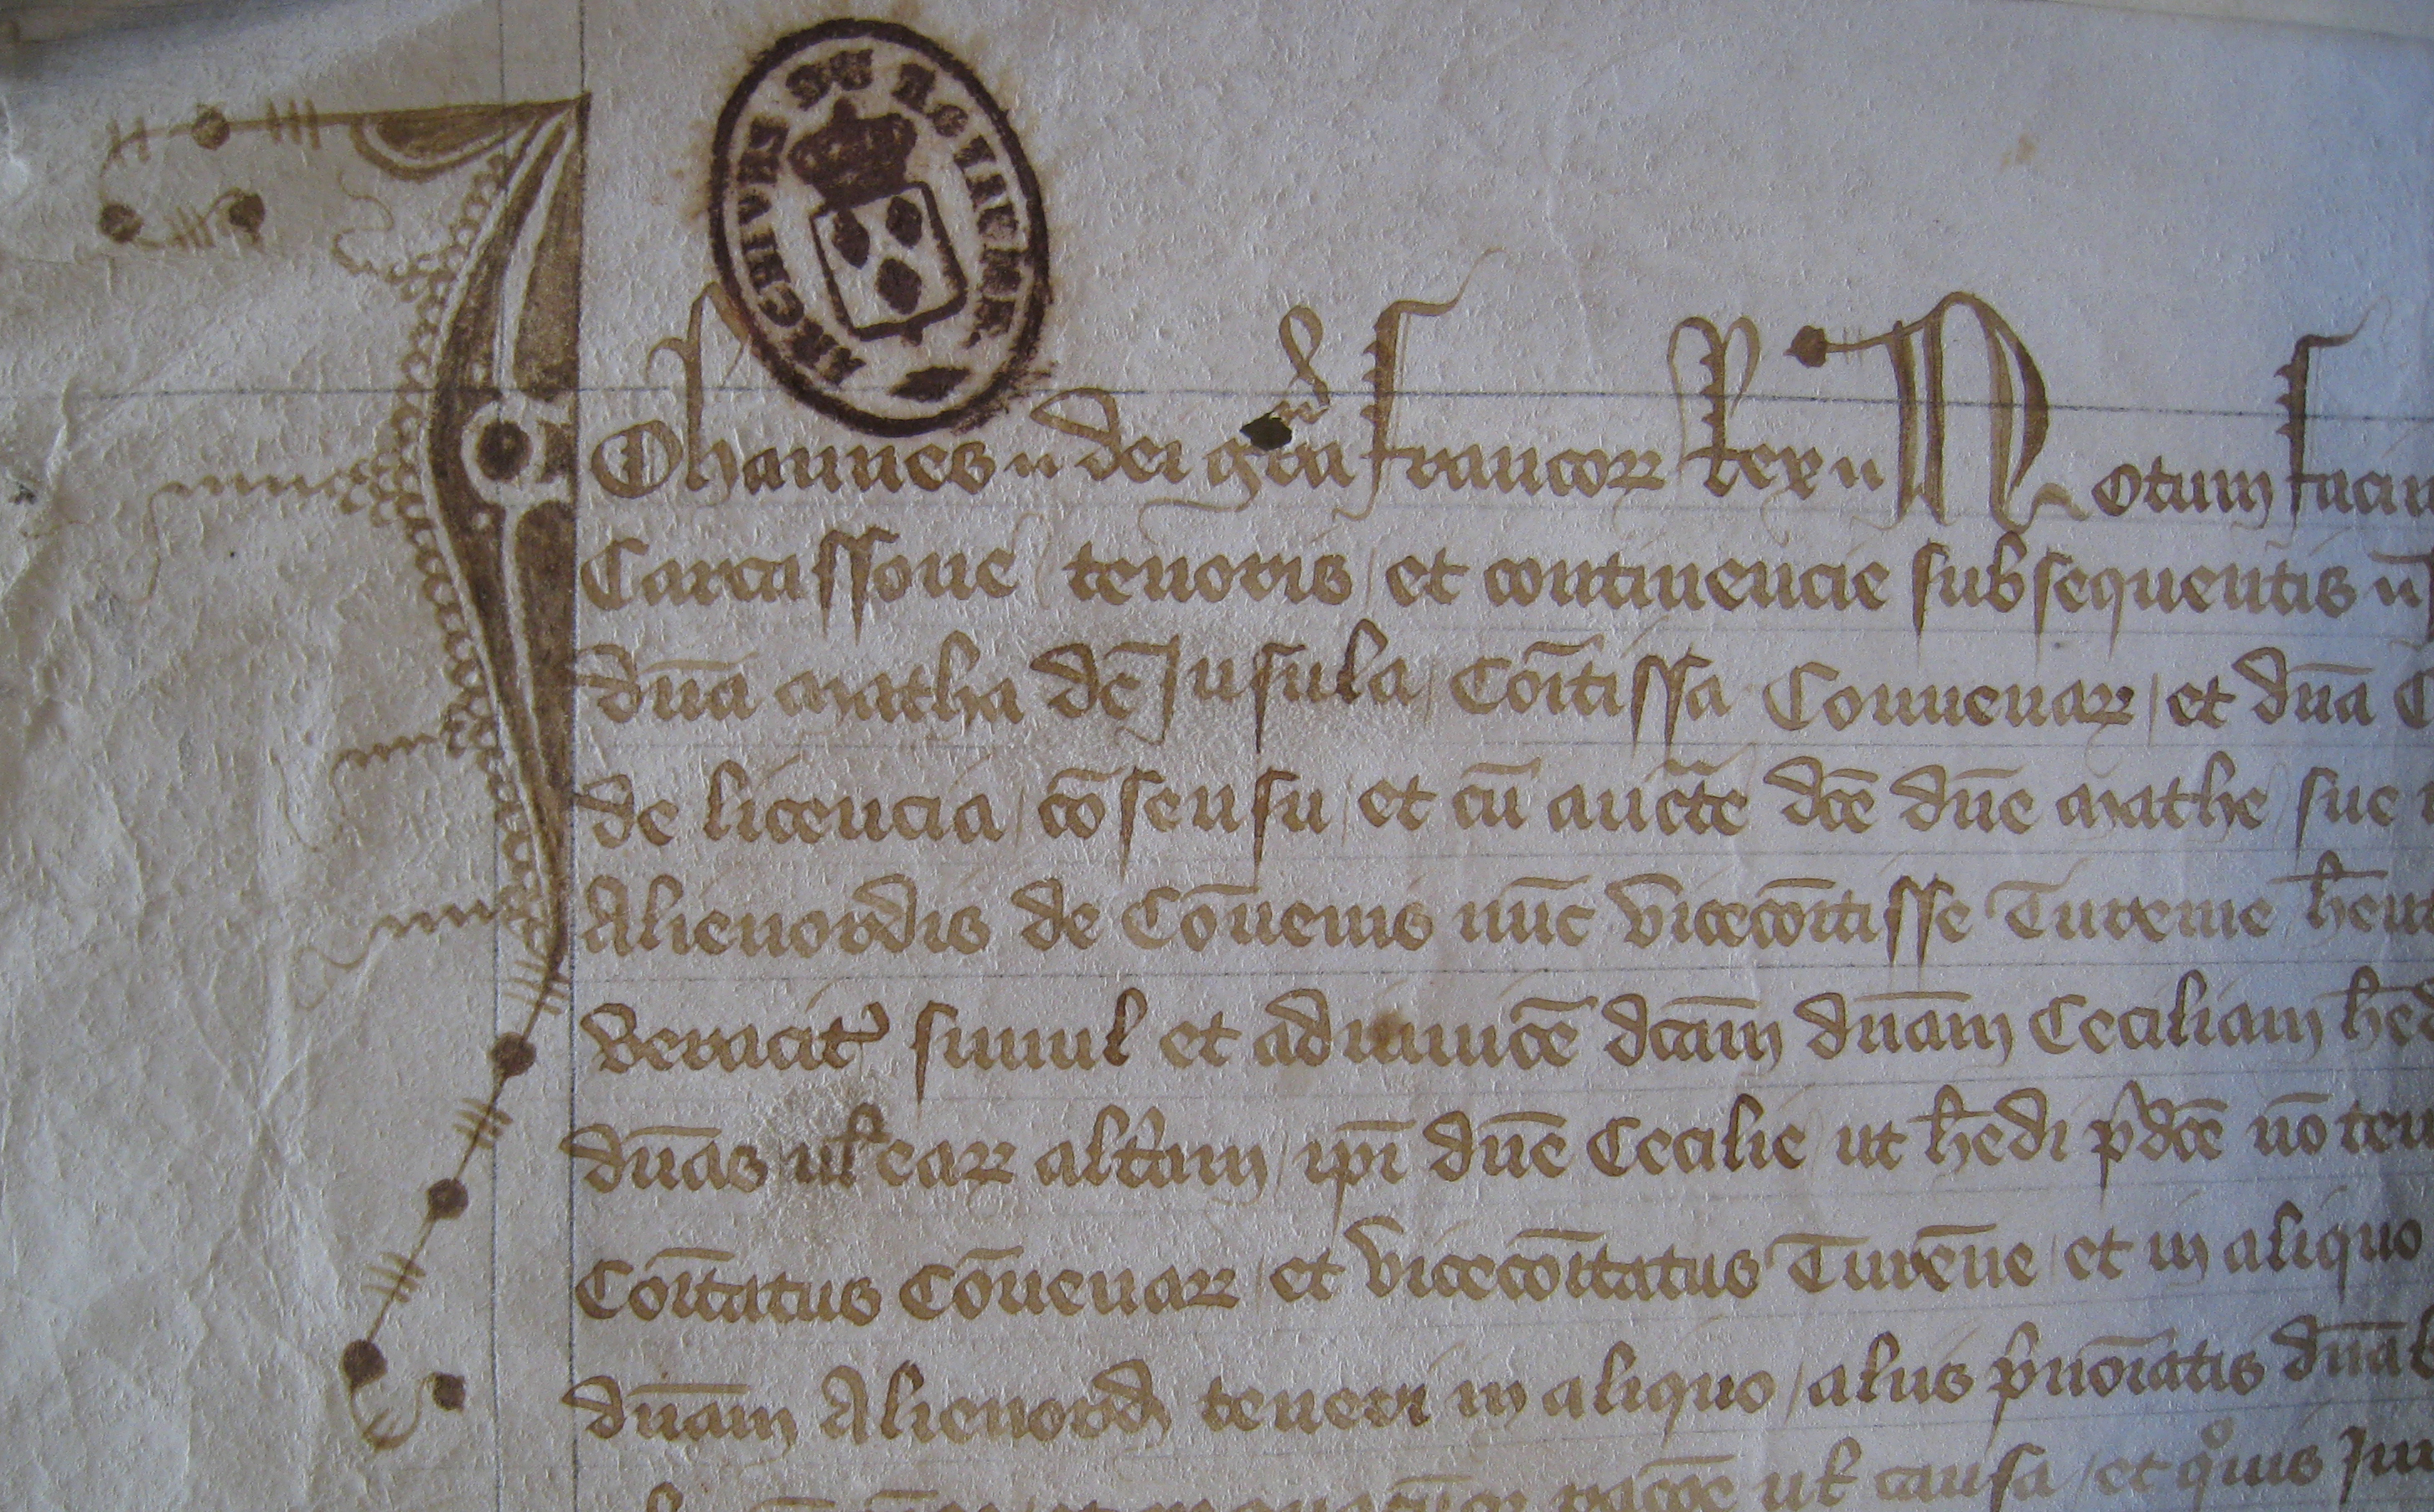 ARCHIVES DU ROYAUME
Johannes dei gr̄a francoꝝ Rex Notum facim
Carcassone / tenoris / et continencie subsequentis
dn̄a Matha de Insula / Com̄tissa Conuenaꝝ / et dn̄a
de licencia / cōsensu / et cū auctt̄e dc̄e dn̄e Mathe / sue
Alienordis de Cōuenis nūc vicecom̄tisse Turenne
Veracit̉ simul et adinuicē dc̄am dn̄am Ceciliam
dn̄as ul̄ eaꝝ alt̄am / ip̄i dn̄e Cecilie / ut h̄edi p̄dc̄e nō ten
Com̄tatus Cōuenaꝝ / et vicecom̄tatus Turēne / et in aliquo
dn̄am Alienord̄ teneri in aliquo / aliis p̄no̅iatis
ul̄ causa / et